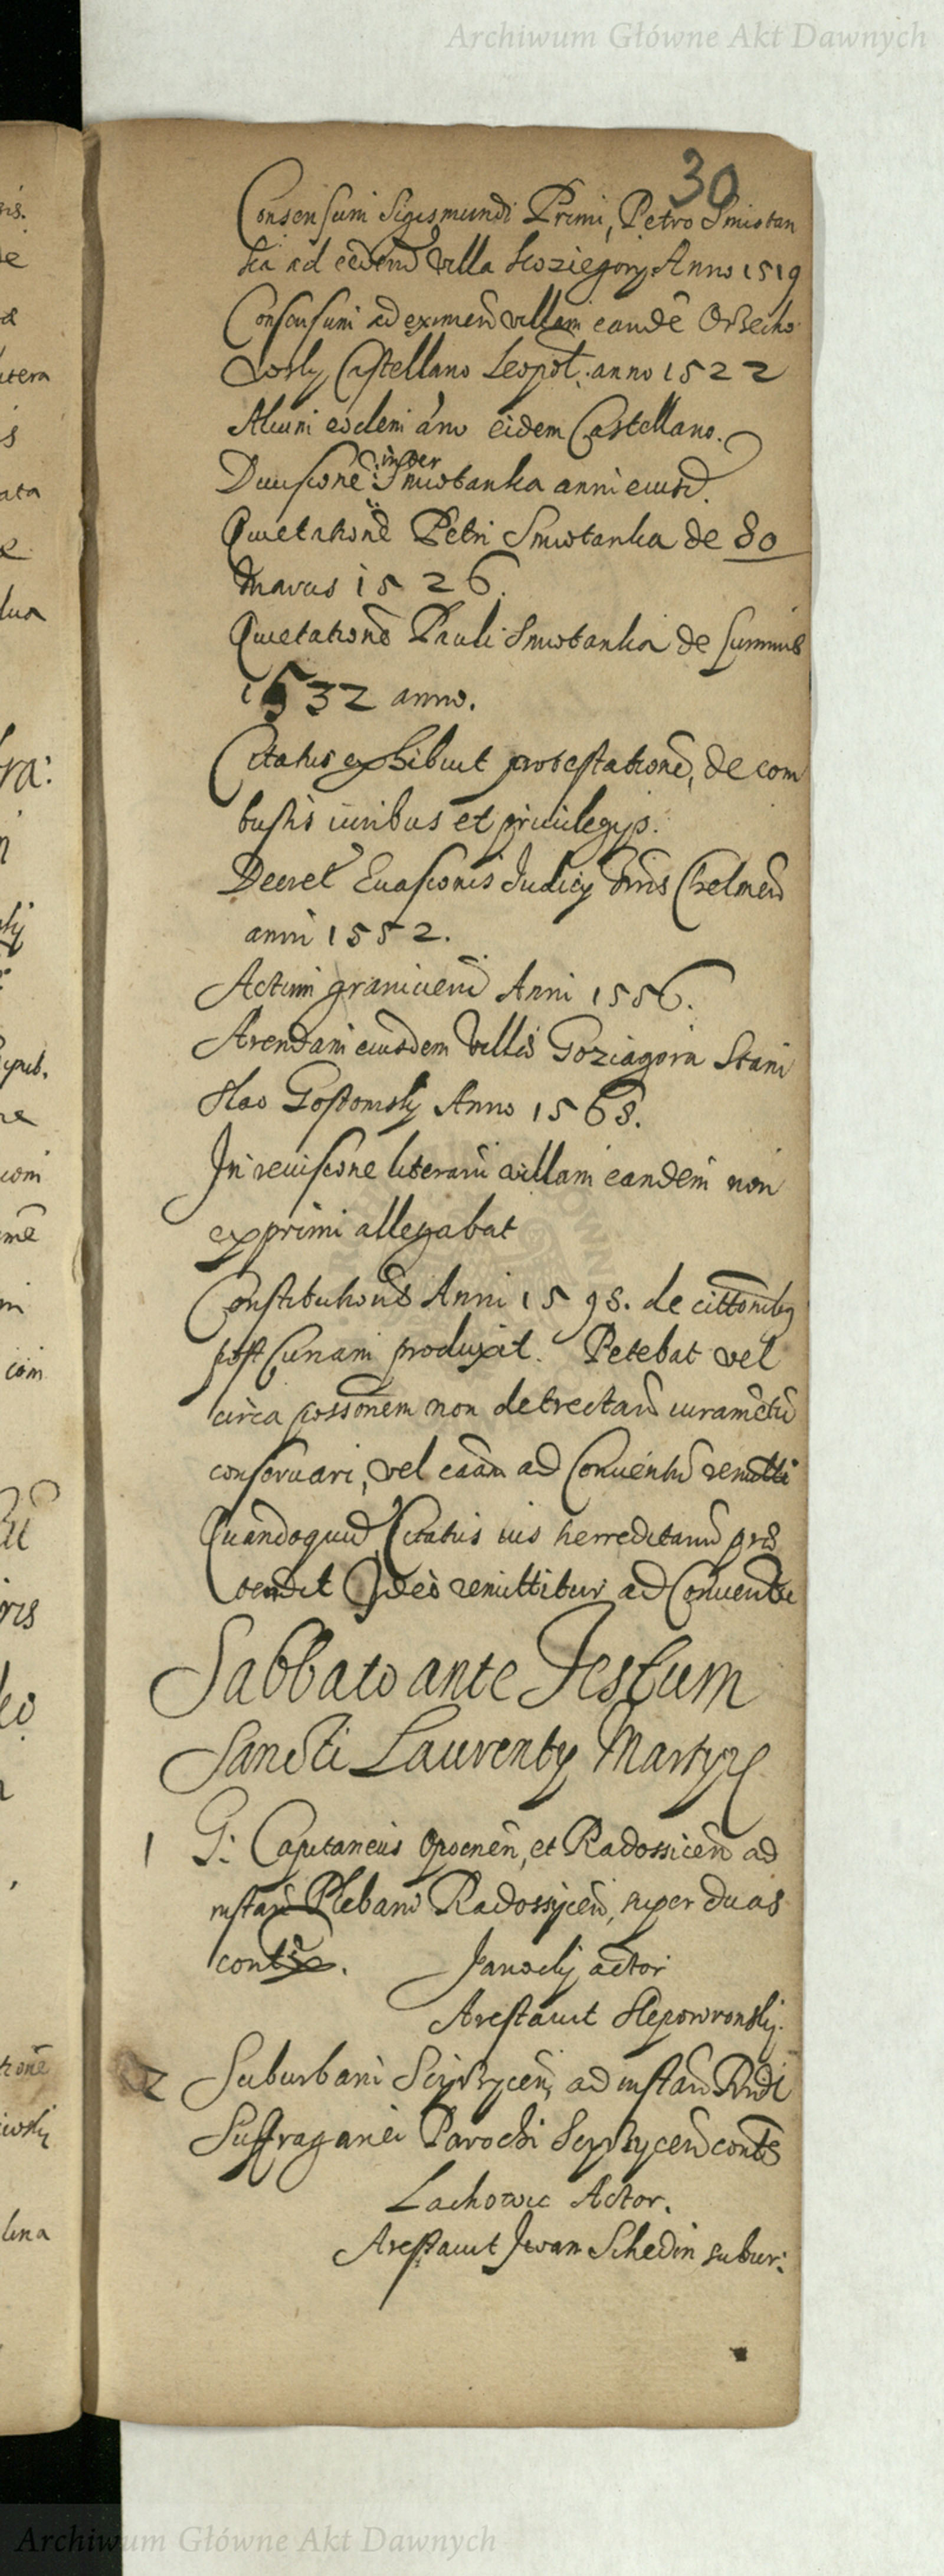 Archiwum Główne Akt Dawnych
30
Consensum Sigismundi Primi, Petro Smiotan
ka ad eandem villa Koziegory Anno 1519
Consensum ad eximend villam eandē Orzecho
wsky Castellano Leopol: anno 1522
Alium eodem anno eidem Castellano.
Diuisionē inter Smiotanka anni eiusd.
Quietationē Petri Smiotanka de 80
marcis 1526.
Quietationē Pauli Smiotanka de summis
1532 anno.
Citatus exhibuit protestationē, de com
bustis iuribus et priuilegijs.
Decret Euasionis Judicij Chelmen
anni 1552.
Actum granicien Anni 1556.
Arendam eiusdem villis Goziagora Stani
slao Gostomsky Anno 1568.
In reuisione literarū villam eandem non
exprimi allegabat
Constitutionē Anni 1598. de cittōnibq
post Curiam produxit. Petebat vel
circa possōnem non detrectand iuramētū
conseruari, vel eam ad Conuentū remitti
Quandoquid Citatus ius herreditariū prę
tendit Ideo remittitur ad Conuentū
Sabbato ante Festum
Sancti Laurenty Martyr
1 G: Capitaneus Opocnen, et Radossicen ad
instan Plebani Radossycen, super duas
Janocky actor
Arestauit Slepowronsky.
2 Suburbani ad instan Rndi
Suffraganei Parochi conts
Lachowic Actor.
Arestauit Iwan Schedin subur:
Archiwum Główne Akt Dawnych